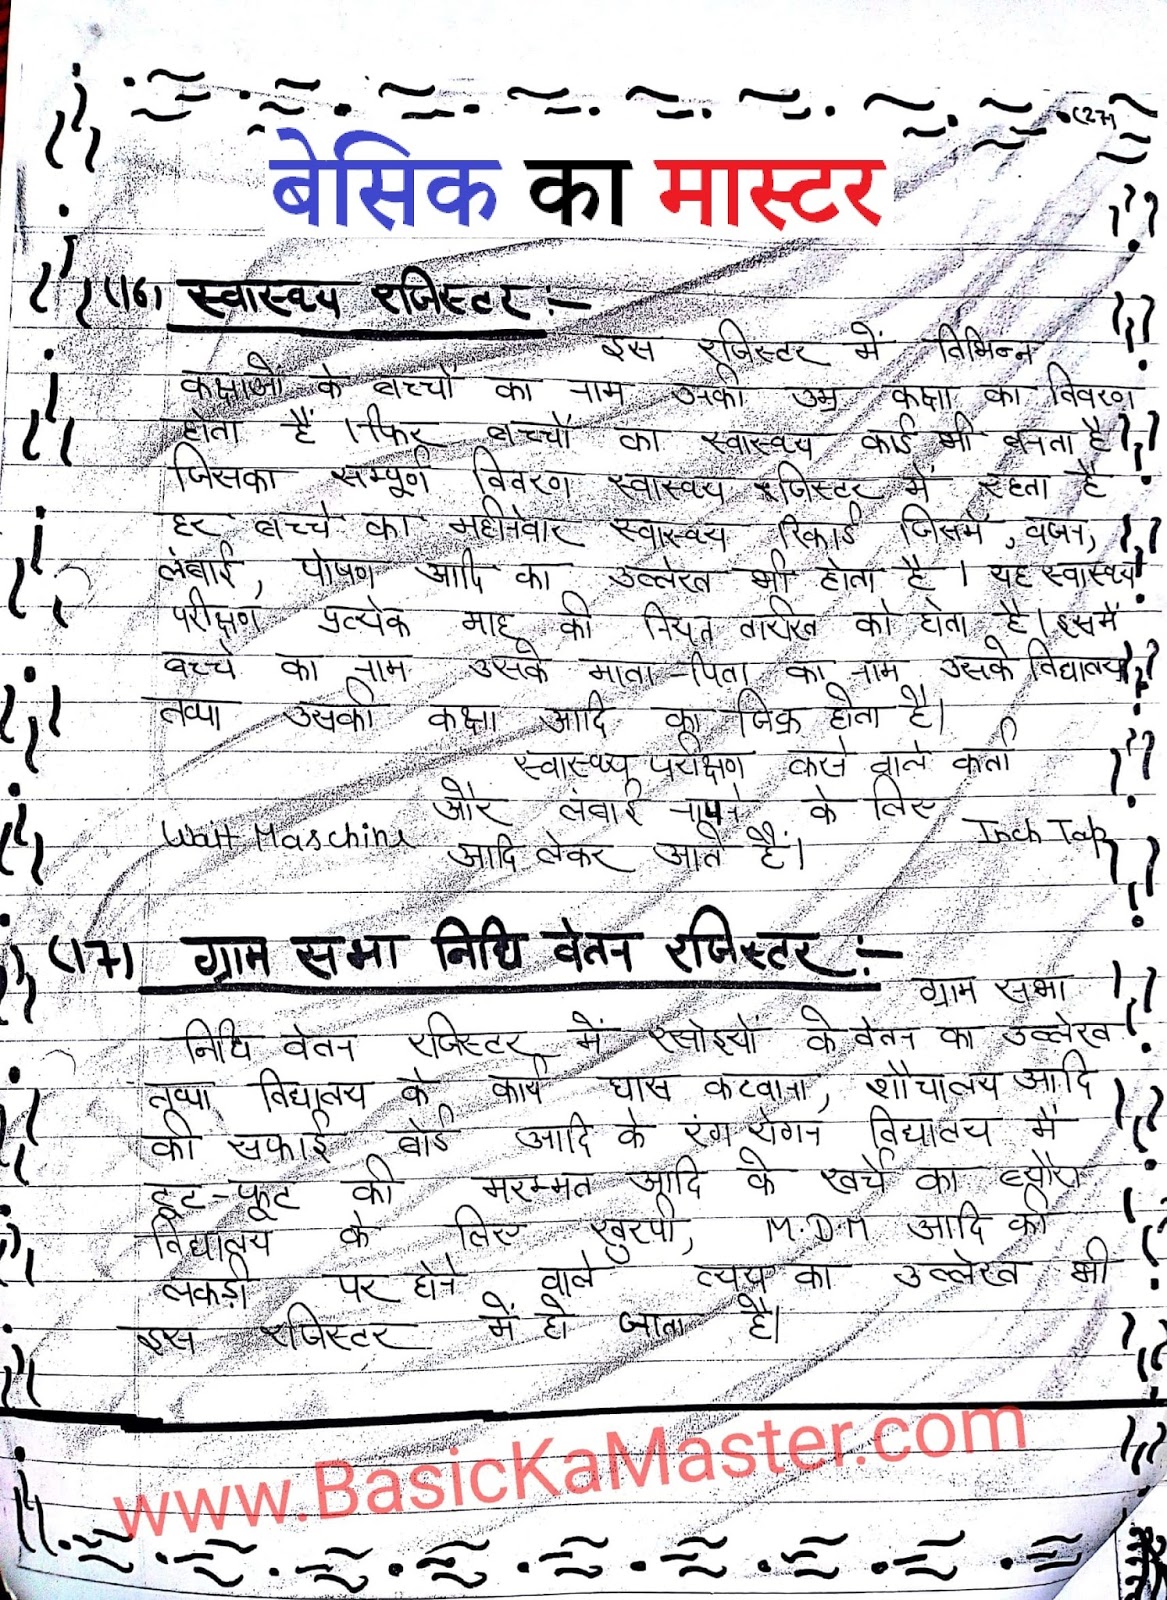 (27)
बेसिक का मास्टर
(16) स्वास्थ्य रजिस्टर :-
इस रजिस्टर में विभिन्न
कक्षाओं के बच्चों का नाम उनकी उम्र कक्षा का विवरण
होता हैं । फिर बच्चों का स्वास्थ्य कार्ड भी बनता है।
जिसका सम्पूर्ण विवरण स्वास्थ्य रजिस्टर में रहता है
हर बच्चे का महीनेवार स्वास्थ्य रिकार्ड जिसमें, वजन,
लंबाई, पोषण आदि का उल्लेख भी होता है । यह स्वास्थ्य
परीक्षण प्रत्येक माह की नियत तारीख को होता है। इसमें
बच्चे का नाम उसके माता-पिता का नाम उसके विद्यालय
तथा उसकी कक्षा आदि का जिक्र होता है।
स्वास्थ्य परीक्षण करने वाले कर्ता
Wait Maschine और लंबाई नापने के लिए Inch Tap
आदि लेकर आते हैं।
(17) ग्राम सभा निधि वेतन रजिस्टर :-
ग्राम सभा
निधि वेतन रजिस्टर में रसोइयों के वेतन का उल्लेख
तथा विद्यालय के कार्य घास कटवाना, शौचालय आदि
की सफाई बोर्ड आदि के रंग रोगन विद्यालय में
टूट-फूट की मरम्मत आदि के खर्चे का ब्यौरा
विद्यालय के लिए खुरपी, M.D.M आदि की
लकड़ी पर होने वाले व्यय का उल्लेख भी
इस रजिस्टर में हो जाता है।
www.BasicKaMaster.com